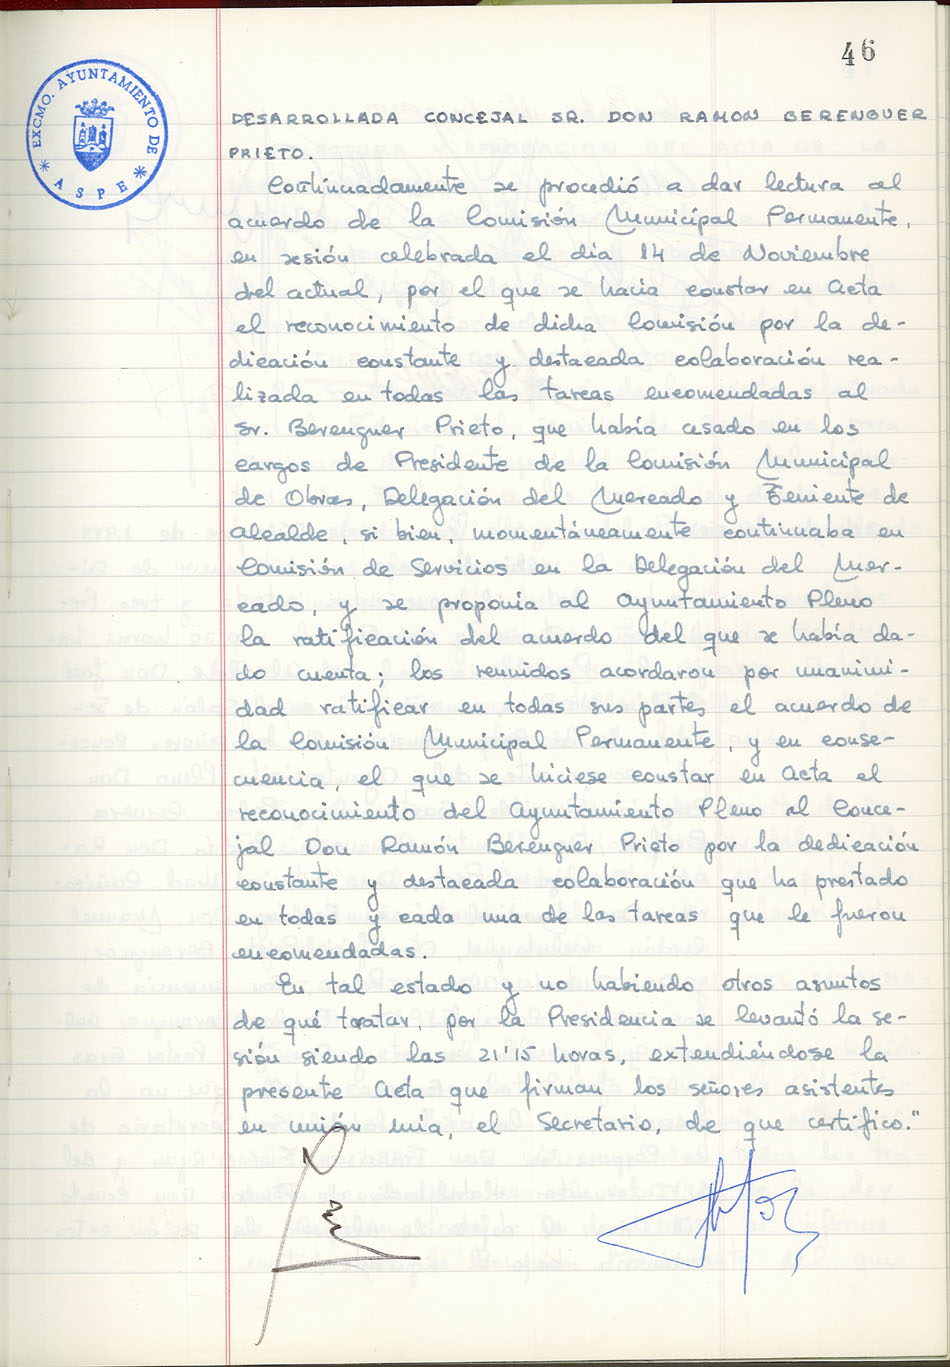 46
EXCMO. AYUNTAMIENTO DE
* ASPE *
DESARROLLADA CONCEJAL SR. DON RAMON BERENGUER
PRIETO.
Continuadamente, se procedió a dar lectura al
acuerdo de la Comisión Municipal Permanente,
en sesión celebrada el día 14 de Noviembre
del actual, por el que se hacía constar en Acta
el reconocimiento de dicha Comisión por la de-
dicación constante y destacada colaboración rea-
lizada en todas las tareas encomendadas al
Sr. Berenguer Prieto, que había cesado en los
cargos de Presidente de la Comisión Municipal
de Obras, Delegación del Mercado y Teniente de
Alcalde, si bien, momentáneamente continuaba en
Comisión de Servicios en la Delegación del Mer-
cado, y se proponía al Ayuntamiento Pleno
la ratificación del acuerdo del que se había da-
do cuenta; los reunidos acordaron por unanimi-
dad ratificar en todas sus partes el acuerdo de
la Comisión Municipal Permanente, y en conse-
cuencia, el que se hiciese constar en Acta el
reconocimiento del Ayuntamiento Pleno al Conce-
jal Don Ramón Berenguer Prieto por la dedicación
constante y destacada colaboración que ha prestado
en todas y cada una de las tareas que le fueron
encomendadas.
En tal estado y no habiendo otros asuntos
de qué tratar, por la Presidencia se levantó la se-
sión siendo las 21'15 horas, extendiéndose la
presente Acta que firman los señores asistentes
en unión mía, el Secretario, de que certifico."